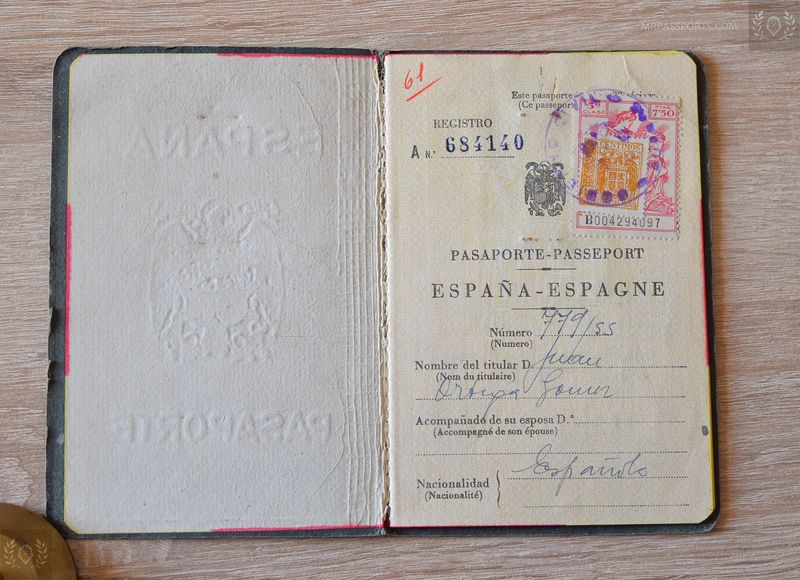 MRPASSPORTS.COM
ESPAÑA
PASAPORTE
61
Este pasaporte
(Ce passeport
REGISTRO
A N.º 684140
3ª CLASE
PTAS. 7'50
CENTIMOS
B004294097
PASAPORTE-PASSEPORT
ESPAÑA-ESPAGNE
Número 779/55
(Numero)
Nombre del titular D. Juan
(Nom du titulaire)
Acompañado de su esposa D.ª
(Accompagné de son épouse)
Nacionalidad Española
(Nacionalité)